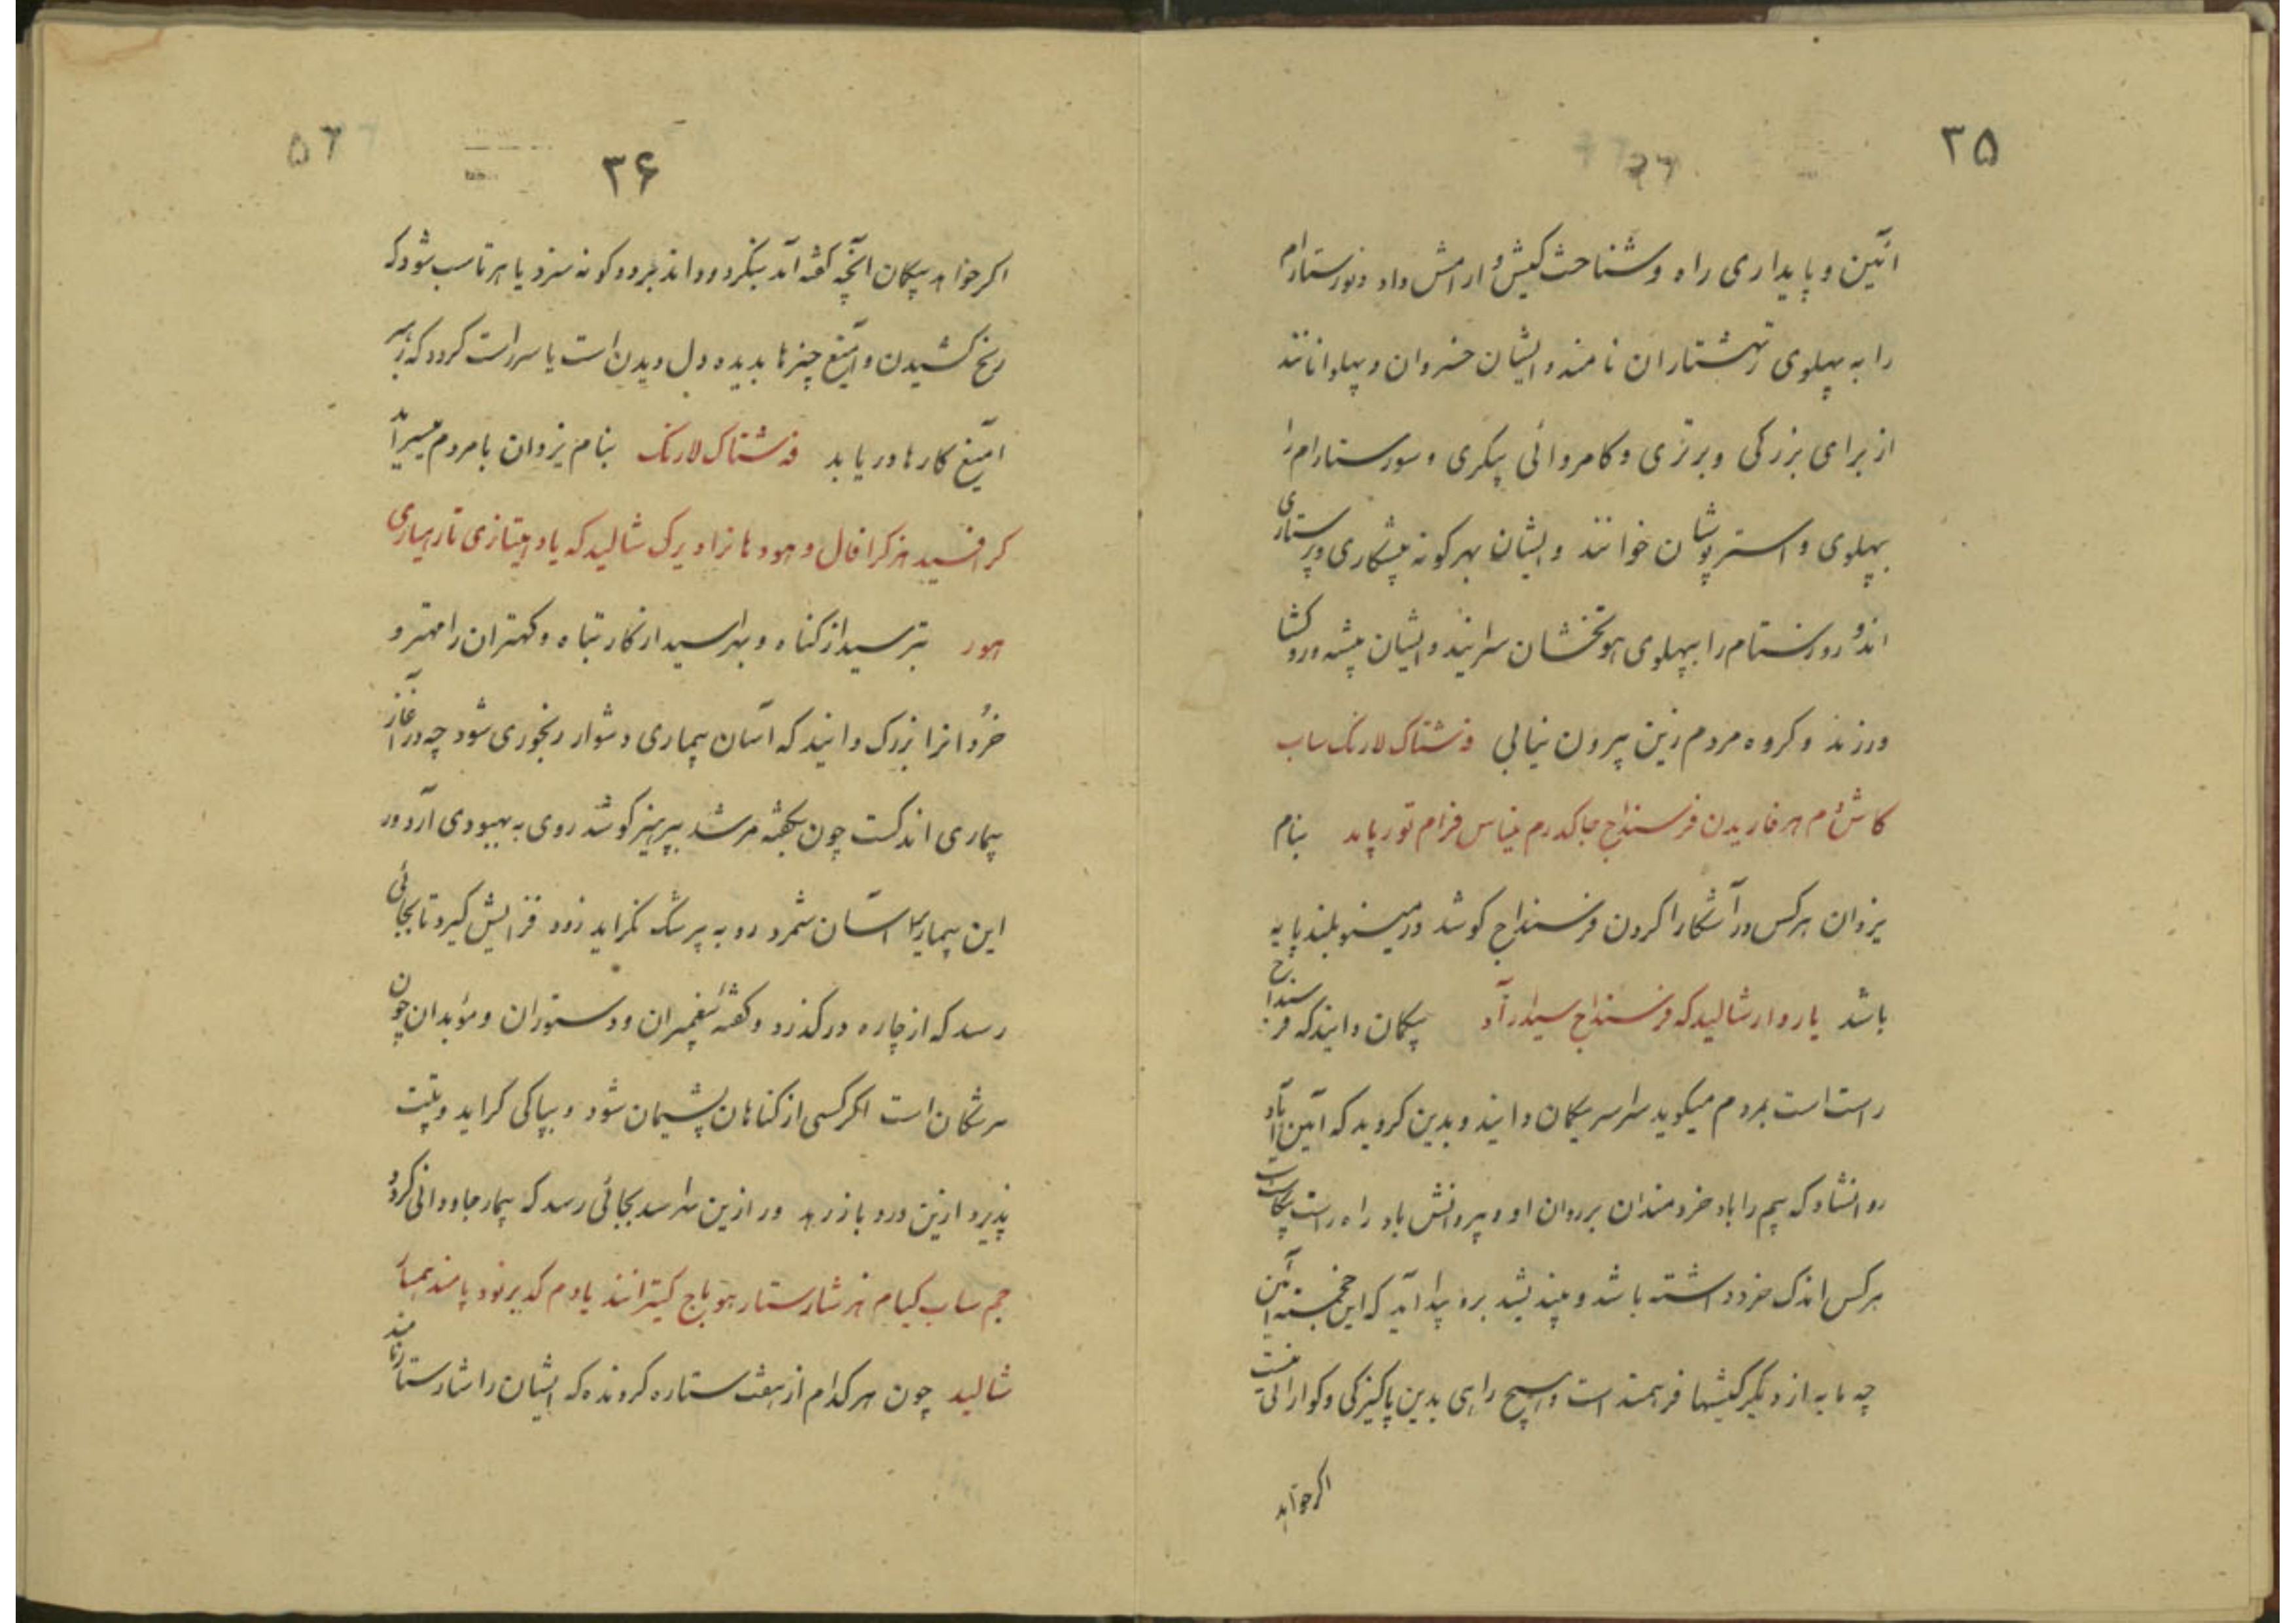 ۳۵
۲۶
آئین و پایداری راه و شناخت کیش و ارامش داد و نورستارام
را به پهلوی رتهشتاران نامند و ایشان خسروان و پهلوانانند
از برای بزرکی و برتری و کامروائی پیکری و سورستارام را
بپهلوی واستریوشان خوانند و ایشان بهرکونه پیشکاری و پرستاری
اند و روزستام را بپهلوی هوتخشان سرایند و ایشان پیشه ور و کشا
ورزند و کروه مردم زین بیرون نیابی فه شتاک لارنک ساب
کاش م هرفاریدن فرسنداج جاکدرم میناس فرام تورپاید بنام
یزدان هرکس در آشکارا کردن فرسنداج کوشد در مینو بلند پایه
باشد یاروار شالیدکه فرسنداج سیدار آد بیکمان دانیدکه فرسنداج
راست است بمردم میکوید سراسر بیکمان دانید و بدین کروید که آئین آباد
روانشاد که بیم را باد خردمندان بر روان او و پیروانش باد راه راست بیکاست
هرکس اندک خرد داشته باشد و بیندیشد برو پیدا آید که این خجسته آئین
چه مایه از دیکر کیشها فرهمند است و هیچ راهی بدین پاکیزکی و کوارائی نیست
اکر خواهد
۵۶
۳۶
اکر خواهد بیکمان آنچه کفته آمد بنکرد و داند برد دو کونه سزد یا هرتاسب شود که
رنج کشیدن و آمیغ چیزها بدیده دل دیدن است یا سرراست کردد که رهبر
آمیغ کارها دریابد فه شتاک لارنک بنام یزدان بامردم میسراید
کرافسید هزکرافال و هودهانزاد یرک شالیدکه یاد اهیتازی تارهیاری
هور بترسید از کناه و بهراسید از کار تباه و کهتران را مهتر و
خردانرا بزرک دانید که آسان بیماری دشوار رنجوری شود چه در آغاز
بیماری اندکست چون بکفته مرشد بپرهیز کوشد روی به بهبودی آرد ور
این بیماریرا آسان شمرد و به پرشک نکراید زود فزایش کیرد تا بجائی
رسد که از چاره درکذرد و کفته پیغمبران و دستوران و موبدان چون
سرشکان است اکر کسی از کناهان پشیمان شود و بپاکی کراید و پتت
پذیرد ازین درد باز رهد ور ازین نهراسد بجائی رسد که بیمار جاودانی کردد
جم ساب کیام هزشارستار هو باج کیترانند یادم کدیرنود پامند همبار
شالید چون هرکدام از هفت ستاره کرونده که ایشان را شارستار نامند